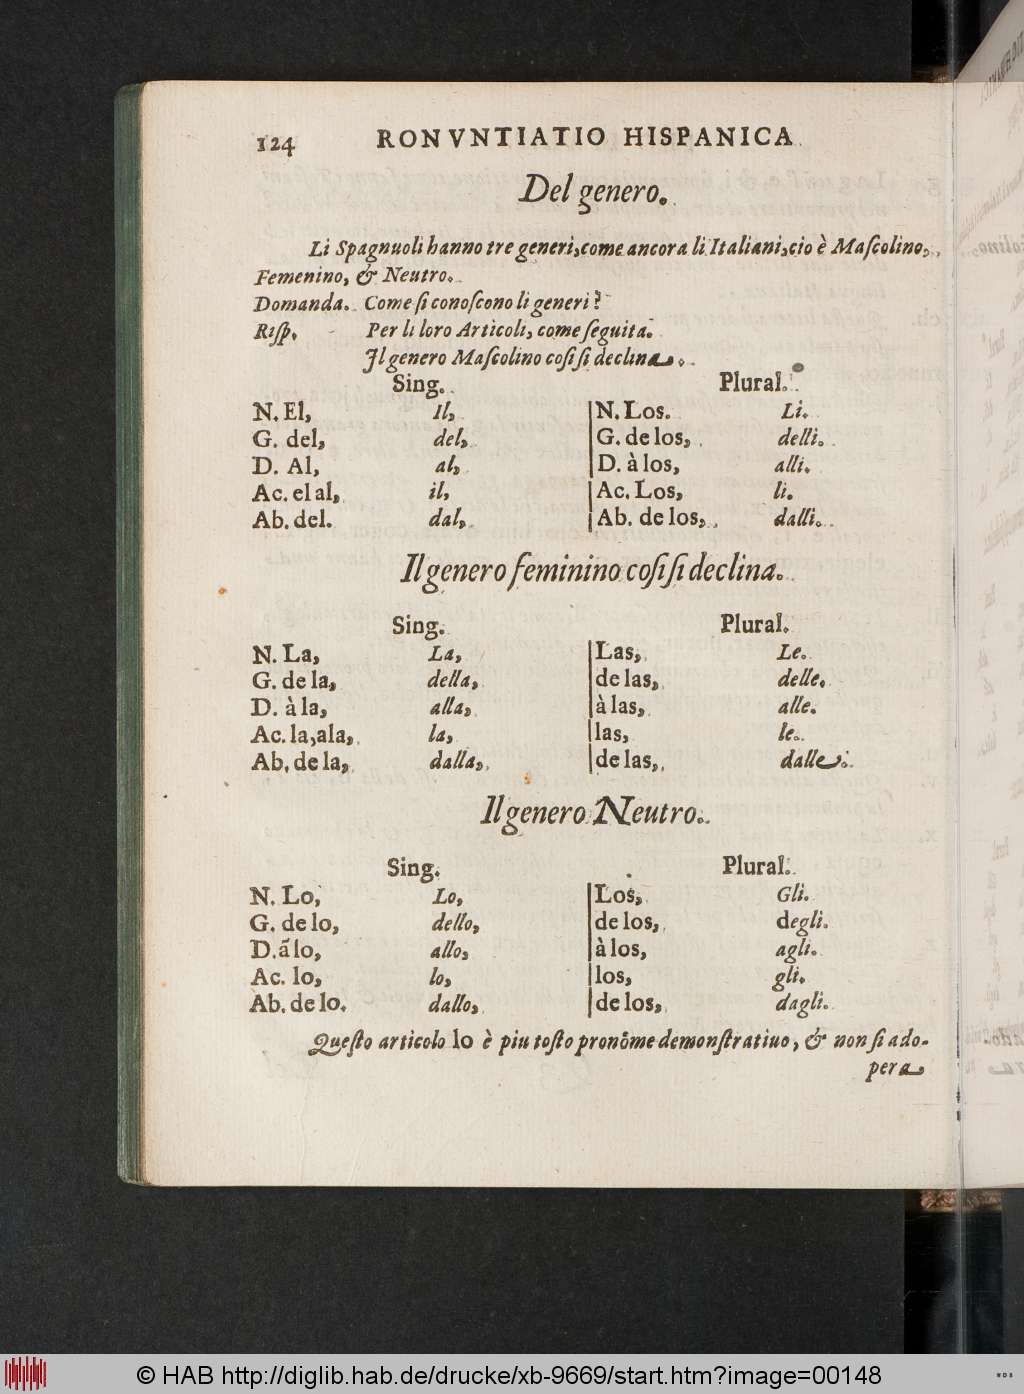 124 RONVNTIATIO HISPANICA
Del genero.
Li Spagnuoli hanno tre generi, come ancora li Italiani, cio è Maſcolino,
Femenino, & Neutro.
Domanda. Come ſi conoſcono li generi?
Riſp. Per li loro Articoli, come ſeguita.
Il genero Maſcolino coſi ſi declina.
Sing. Plural.
N. El, Il, N. Los. Li.
G. del, del, G. de los, delli.
D. Al, al, D. à los, alli.
Ac. el al, il, Ac. Los, li.
Ab. del. dal, Ab. de los, dalli.
Il genero feminino coſi ſi declina.
Sing. Plural.
N. La, La, Las, Le.
G. de la, della, de las, delle.
D. à la, alla, à las, alle.
Ac. la, ala, la, las, le.
Ab. de la, dalla, de las, dalle.
Il genero Neutro.
Sing. Plural.
N. Lo, Lo, Los, Gli.
G. de lo, dello, de los, degli.
D. ã lo, allo, à los, agli.
Ac. lo, lo, los, gli.
Ab. de lo. dallo, de los, dagli.
Queſto articolo lo è piu toſto pronõme demonſtratiuo, & non ſi ado-
pera
© HAB http://diglib.hab.de/drucke/xb-9669/start.htm?image=00148